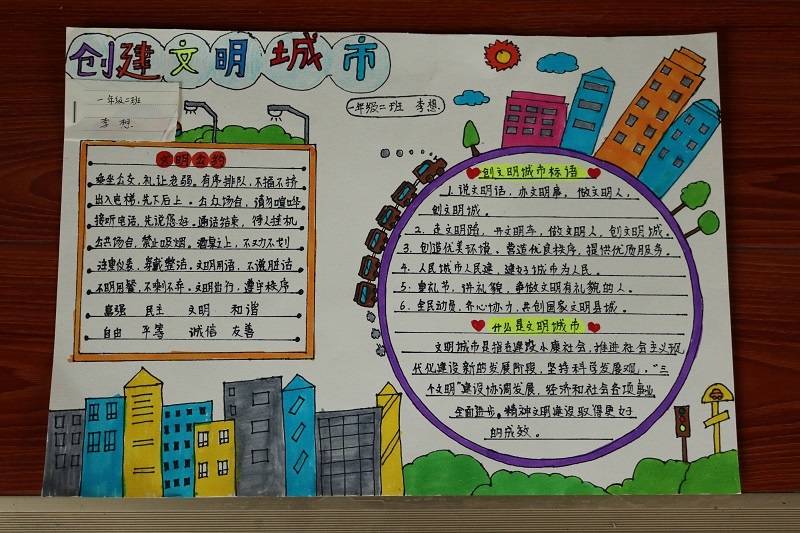 创建文明城市
一年级二班
李想
一年级二班 李想
文明公约
乘坐公交，礼让老弱。有序排队，不插不挤
出入电梯，先下后上。公众场合，请勿喧哗
接听电话，先说您好。通话结束，待人挂机
公共场合，禁止吸烟。墙草之上，不又刀不刻
注重仪表，穿戴整洁。文明用语，不说脏话
不明用餐，不剩不弃。文明出行，遵守秩序
富强 民主 文明 和谐
自由 平等 诚信 友善
创文明城市标语
1. 说文明话，办文明事，做文明人，
创文明城。
2. 走文明路，开文明车，做文明人，创文明城。
3. 创造优美环境、营造优良秩序，提供优质服务。
4. 人民城市人民建，建好城市为人民。
5. 重礼节，讲礼貌，争做文明有礼貌的人。
6. 全民动员，齐心协力，共创国家文明县城。
什么是文明城市
文明城市是指在建设小康社会，推进社会主义现
代化建设新的发展阶段，坚持科学发展观，“三
个文明”建设协调发展，经济和社会各项事业
全面进步。精神文明建设取得更好
的成效。